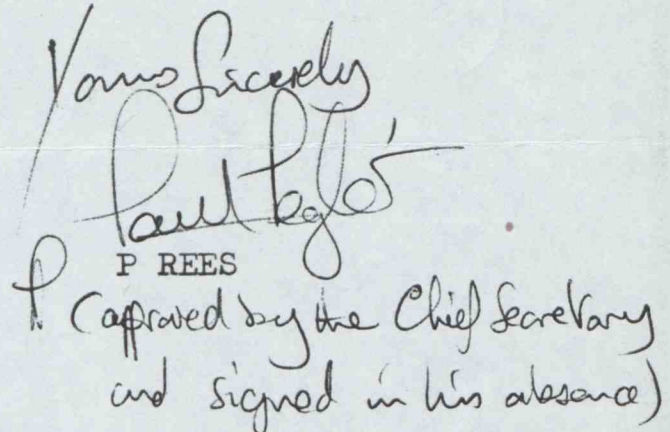 Yours Sincerely
Paul Pegler
P REES
P. (approved by the Chief Secretary
and signed in his absence)